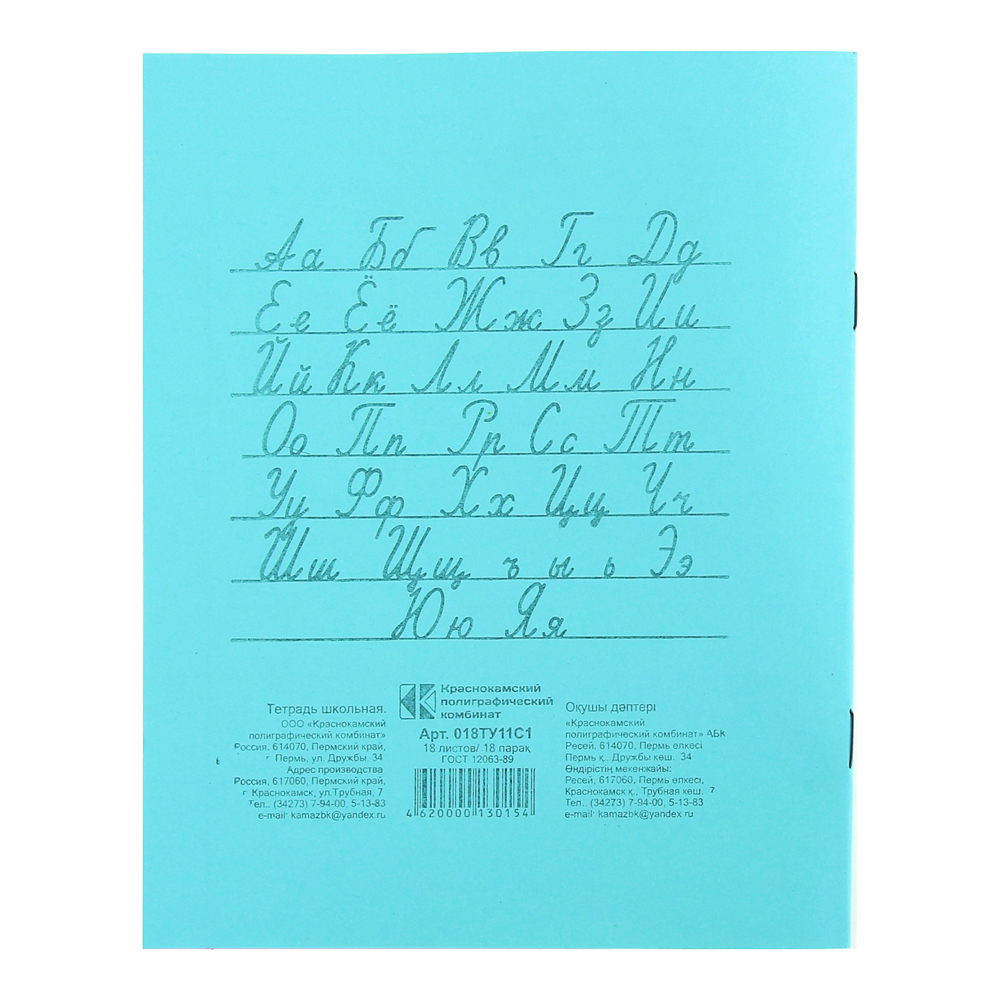 Аа Бб Вв Гг Дд
Ее Ёё Жж Зз Ии
Йй Кк Лл Мм Нн
Оо Пп Рр Сс Тт
Уу Фф Хх Цц Чч
Шш Щщ ъ ы ь Ээ
Юю Яя
Тетрадь школьная.
ООО «Краснокамский
полиграфический комбинат»
Россия. 614070, Пермский край,
г Пермь, ул. Дружбы. 34
Адрес производства
Россия, 617060, Пермский край,
г Краснокамск, ул.Трубная, 7
Тел.. (34273) 7-94-00, 5-13-83
e-mail: kamazbk@yandex.ru
Краснокамский
полиграфический
комбинат
Арт. 018ТУ11С1
18 листов/ 18 парақ
ГОСТ 12063-89
4620000130154
Оқушы дәптері
«Краснокамский
полиграфический комбинат» АБК
Ресей. 614070, Пермь өлкесі
Пермь қ., Дружбы көш. 34
Өндірістің мекенжайы:
Ресей, 617060, Пермь өлкесі,
Краснокамск қ., Трубная көш. 7
Тел.. (34273) 7-94-00, 5-13-83
e-mail: kamazbk@yandex.ru